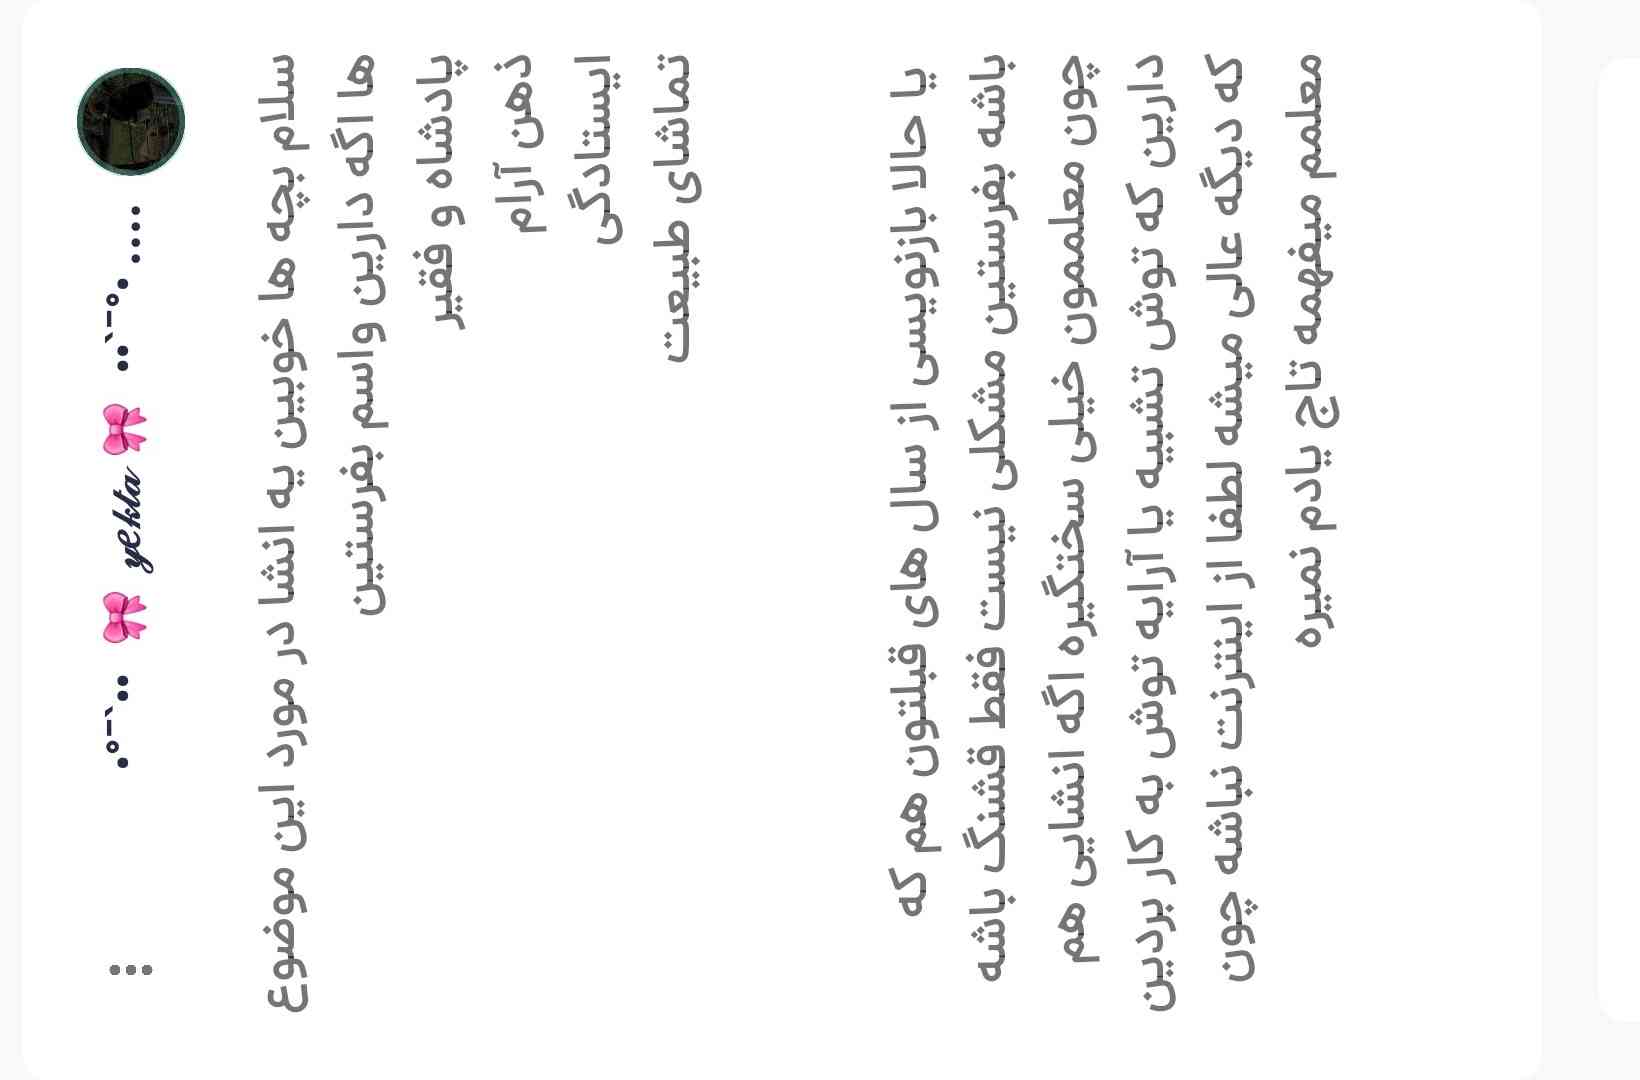 ....•°¯`•• 🎀 𝔂𝓮𝓴𝓽𝓪 🎀 ••`¯°•
سلام بچه ها خوبین یه انشا در مورد این موضوع
ها اگه دارین واسم بفرستین
پادشاه و فقیر
ذهن آرام
ایستادگی
تماشای طبیعت
یا حالا بازنویسی از سال های قبلتون هم که
باشه بفرستین مشکلی نیست فقط قشنگ باشه
چون معلممون خیلی سختگیره اگه انشایی هم
دارین که توش تشبیه یا آرایه توش به کار بردین
که دیگه عالی میشه لطفا از اینترنت نباشه چون
معلمم میفهمه تاج یادم نمیره